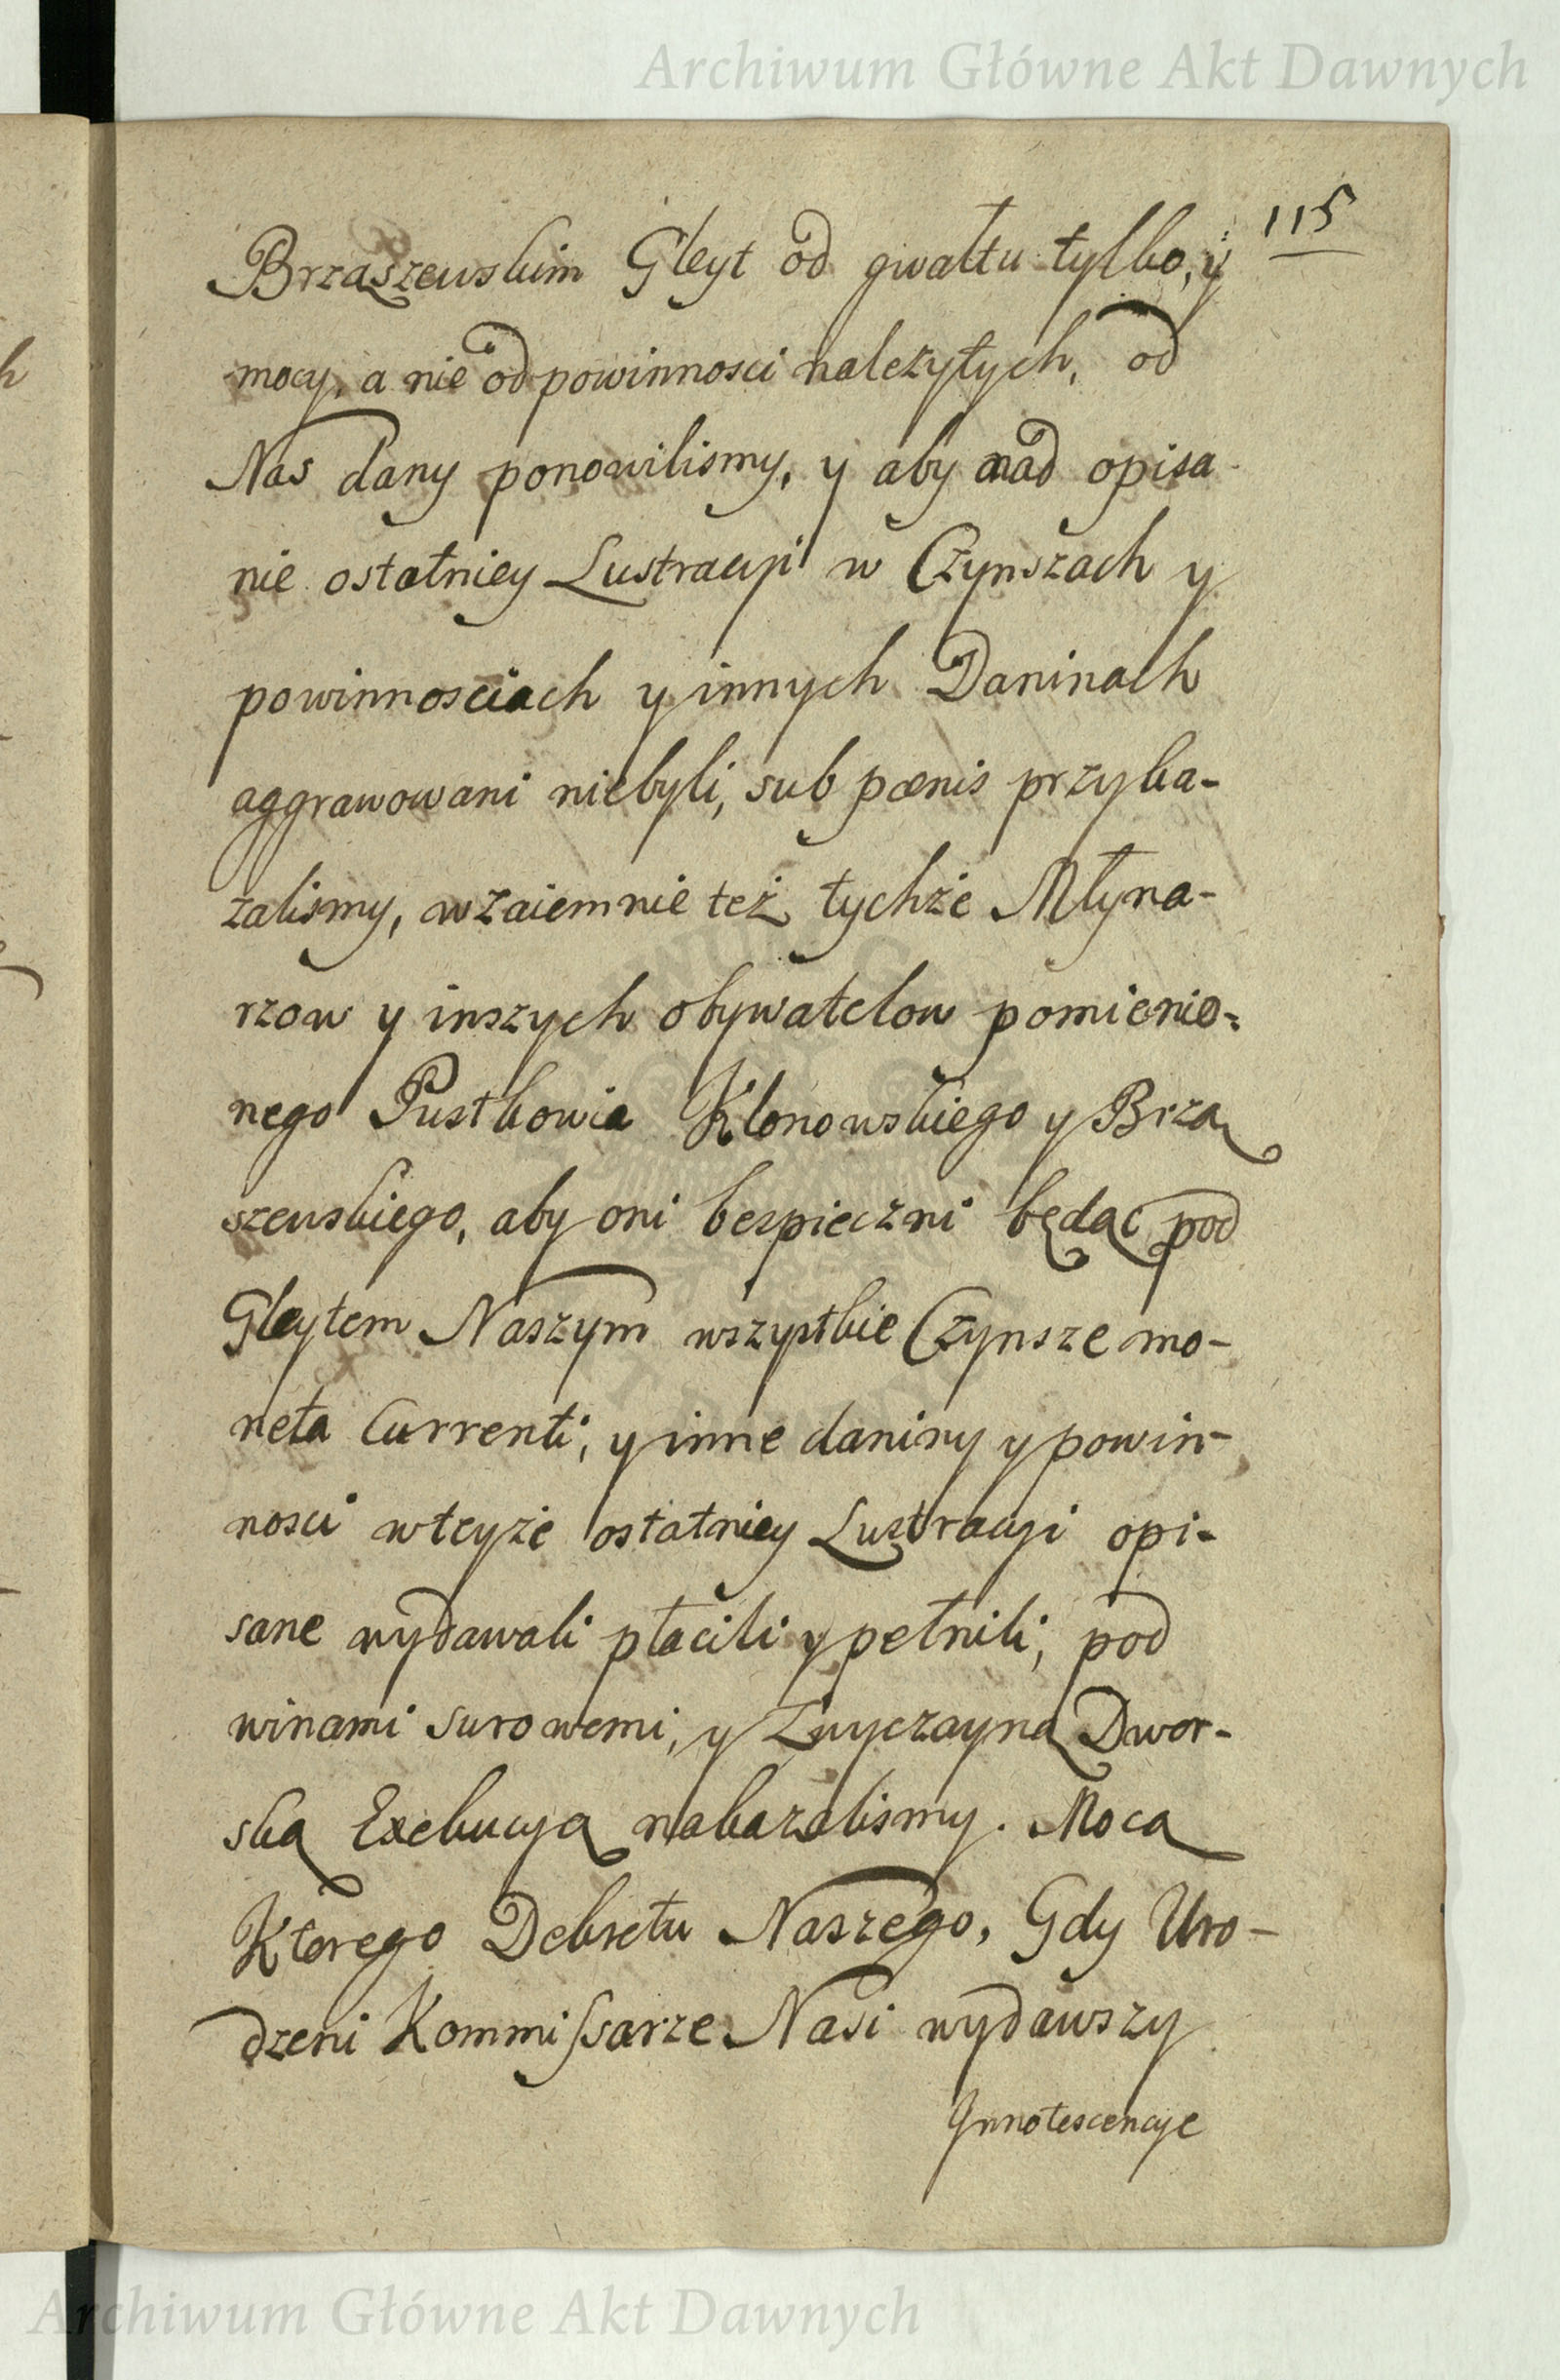 Archiwum Główne Akt Dawnych
115
Brzaszewskim Gleyt od gwałtu tylko, y
mocy, a nie od powinnosci nalezytych, od
Nas dany ponowilismy, y aby nad opisa
nie ostatniey Lustracyi w Czynszach y
powinnosciach y innych Daninach
aggrawowani niebyli, sub pœnis przyka-
zalismy, wzaiemnie też tychże Młyna-
rzow y inszych obywatelow pomienio-
nego Pustkowia Klonowskiego y Brza
szewskiego, aby oni bespieczni będąc pod
Gleytem Naszym wszystkie Czynsze mo-
neta Currenti, y inne daniny y powin-
nosci wteyże ostatniey Lustracyi opi-
sane wydawali płacili y pełnili, pod
winami surowemi, y Zwyczayną Dwor-
ską Exekucyą nakazalismy. Mocą
Ktorego Dekretu Naszego, Gdy Uro-
dzeni Kommissarze Nasi wydawszy
Innotescencye
Archiwum Główne Akt Dawnych